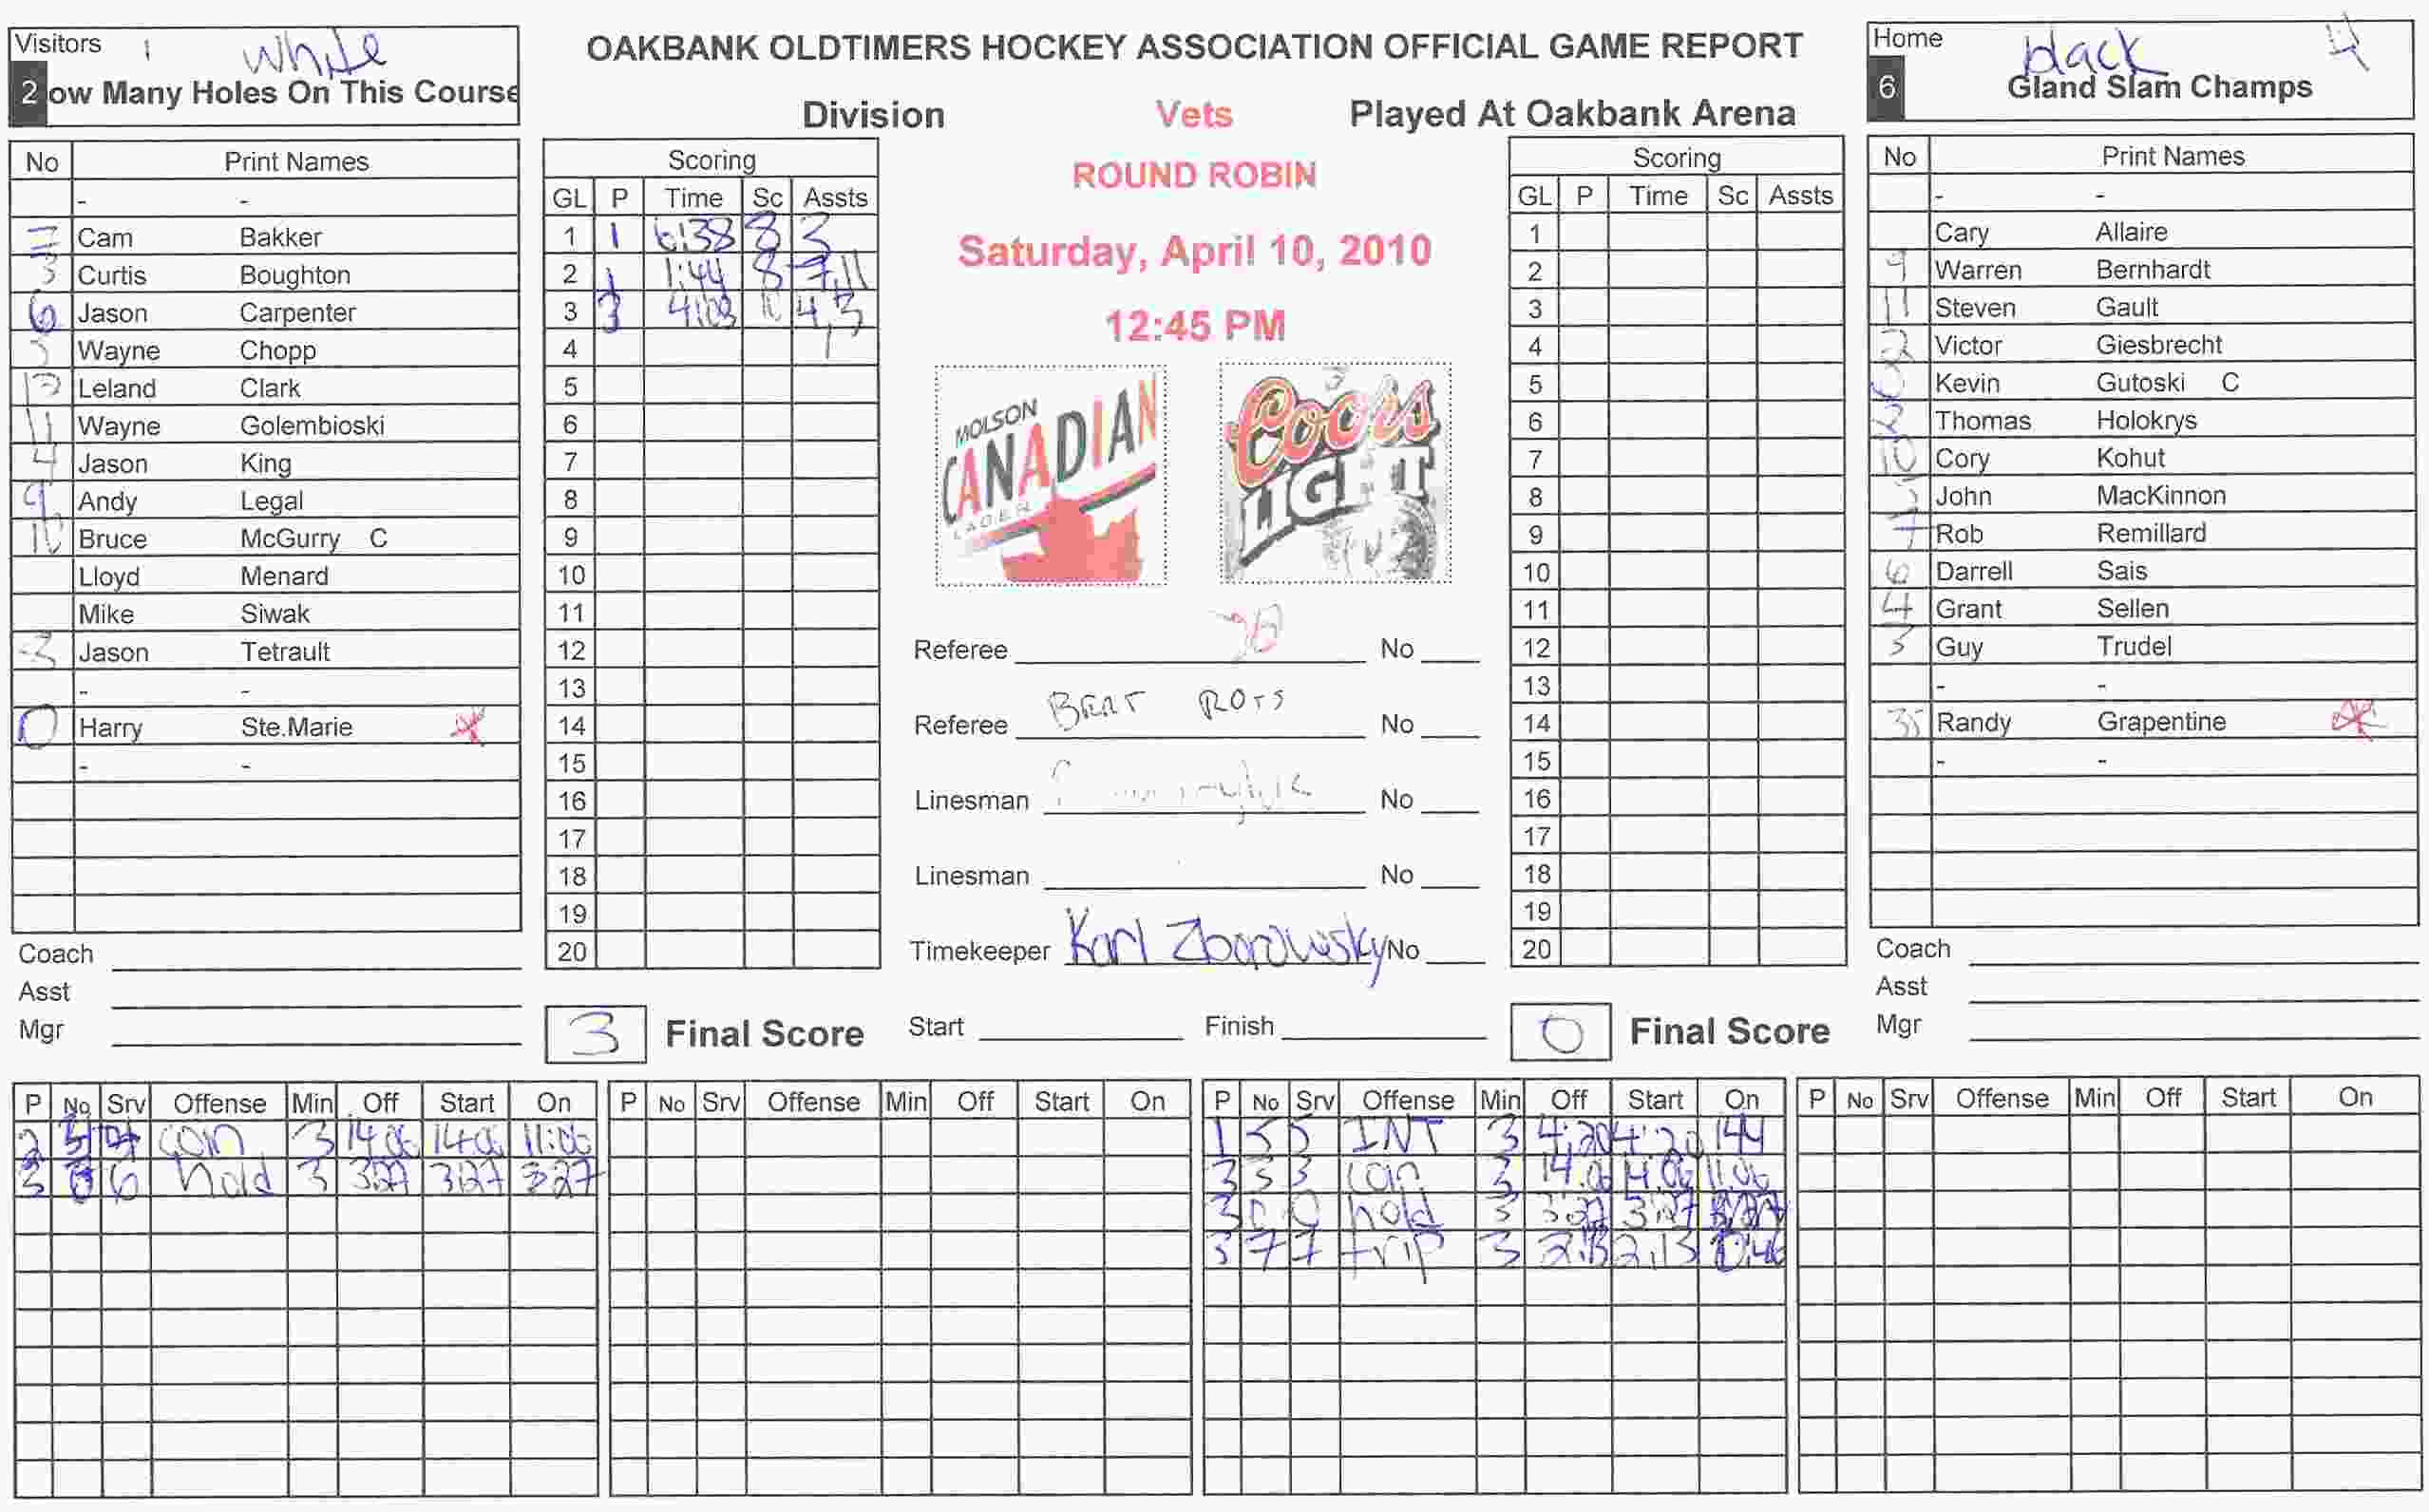 OAKBANK OLDTIMERS HOCKEY ASSOCIATION OFFICIAL GAME REPORT
Division Vets Played At Oakbank Arena
ROUND ROBIN
Saturday, April 10, 2010
12:45 PM
Visitors 1 White
2 ow Many Holes On This Course
No Print Names
- -
7 Cam Bakker
3 Curtis Boughton
6 Jason Carpenter
Wayne Chopp
Leland Clark
11 Wayne Golembioski
4 Jason King
9 Andy Legal
Bruce McGurry C
Lloyd Menard
Mike Siwak
Jason Tetrault
- -
0 Harry Ste.Marie
- -
Coach
Asst
Mgr
Scoring
GL P Time Sc Assts
1 1 6:38 8 3
2 1 1:44 8 7,11
3 3 4:03 4,3
4
5
6
7
8
9
10
11
12
13
14
15
16
17
18
19
20
3 Final Score
MOLSON
CANADIAN
LAGER
Coors
LIGHT
Referee No
Referee BRAT ROTS No
Linesman No
Linesman No
Timekeeper Karl Zborowsky No
Start Finish
Scoring
GL P Time Sc Assts
1
2
3
4
5
6
7
8
9
10
11
12
13
14
15
16
17
18
19
20
0 Final Score
Home black 4
6 Gland Slam Champs
No Print Names
- -
Cary Allaire
9 Warren Bernhardt
11 Steven Gault
2 Victor Giesbrecht
Kevin Gutoski C
Thomas Holokrys
10 Cory Kohut
John MacKinnon
7 Rob Remillard
6 Darrell Sais
4 Grant Sellen
3 Guy Trudel
- -
35 Randy Grapentine
- -
Coach
Asst
Mgr
P No Srv Offense Min Off Start On
2 coin 3 14:06 14:06 11:06
3 6 6 hold 3 3:27 3:27 3:27
P No Srv Offense Min Off Start On
P No Srv Offense Min Off Start On
1 5 5 INT 3 4:20 4:20 1:44
3 3 3 coin 3 14:06 14:06 11:06
3 0 0 hold 3 3:27 3:27
3 7 7 trip 3 2:13 2:13 0:46
P No Srv Offense Min Off Start On